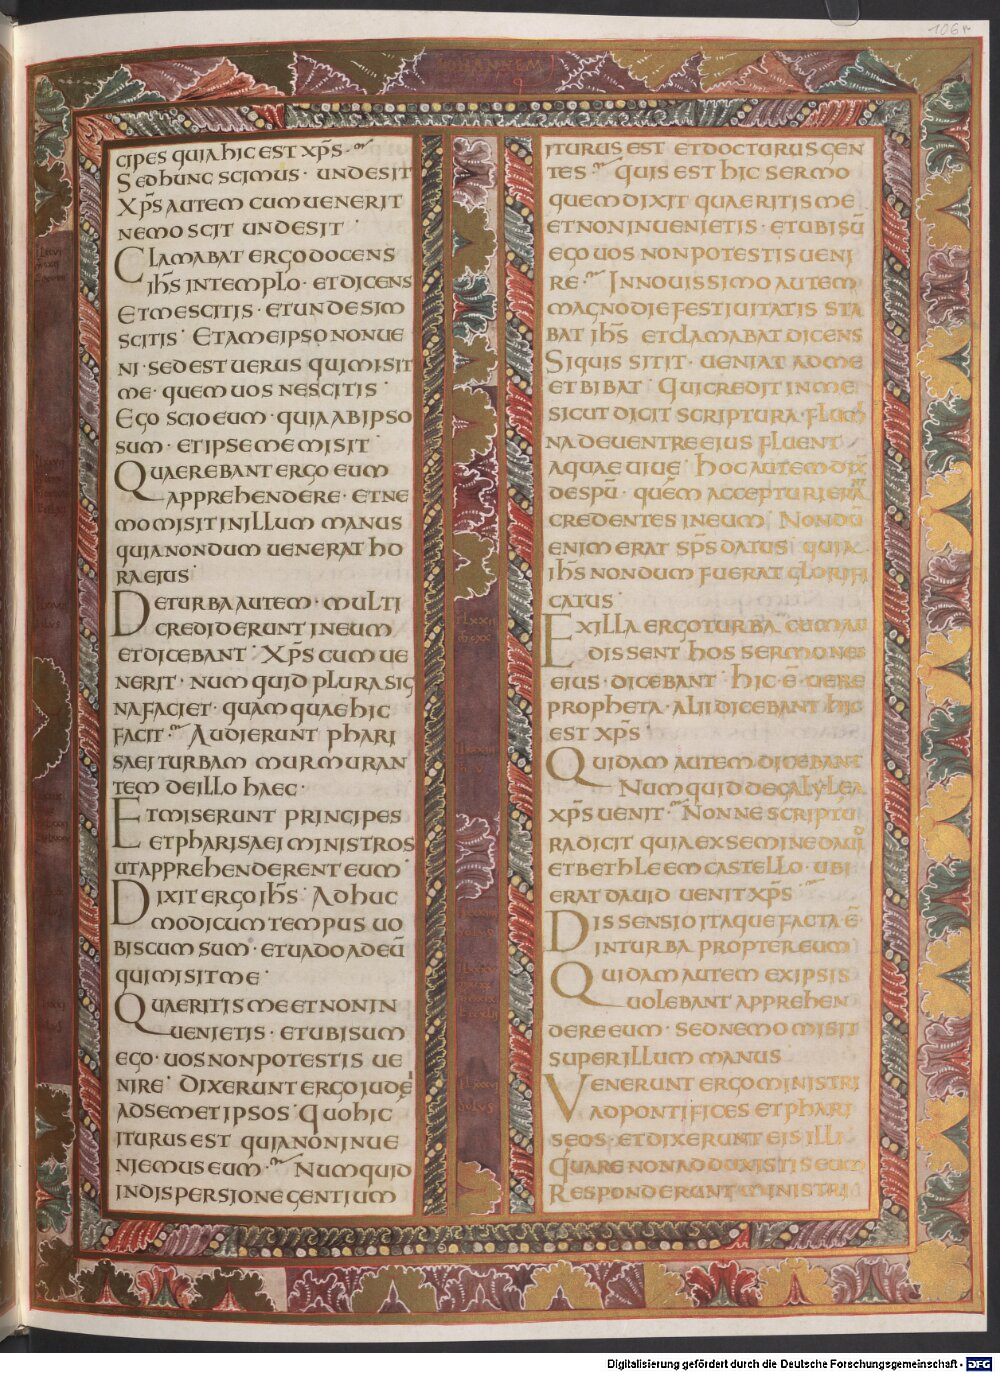 106r
IOHANNEM
CIPES QUIA HIC EST XP̄S·
SED HUNC SCIMUS· UNDE SIT
XP̄S AUTEM CUM UENERIT
NEMO SCIT UNDE SIT·
CLAMABAT ERGO DOCENS
IH̄S IN TEMPLO· ET DICENS
ET ME SCITIS· ET UNDE SIM
SCITIS· ET A ME IPSO NON UE
NI· SED EST UERUS QUI MISIT
ME· QUEM UOS NESCITIS·
EGO SCIO EUM· QUIA AB IPSO
SUM· ET IPSE ME MISIT·
QUAEREBANT ERGO EUM
APPREHENDERE· ET NE
MO MISIT IN ILLUM MANUS
QUIA NONDUM UENERAT HO
RA EIUS·
DE TURBA AUTEM· MULTI
CREDIDERUNT IN EUM
ET DICEBANT· XP̄S CUM UE
NERIT· NUMQUID PLURA SIG
NA FACIET· QUAM QUAE HIC
FACIT· AUDIERUNT PHARI
SAEI TURBAM MURMURAN
TEM DE ILLO HAEC·
ET MISERUNT PRINCIPES
ET PHARISAEI MINISTROS
UT APPREHENDERENT EUM·
DIXIT ERGO IH̄S· ADHUC
MODICUM TEMPUS UO
BISCUM SUM· ET UADO AD EŪ
QUI MISIT ME·
QUAERITIS ME ET NON IN
UENIETIS· ET UBI SUM
EGO· UOS NON POTESTIS UE
NIRE· DIXERUNT ERGO IUDĘI
AD SEMET IPSOS· QUO HIC
ITURUS EST QUIA NON INUE
NIEMUS EUM· NUMQUID
IN DISPERSIONE GENTIUM
ITURUS EST ET DOCTURUS GEN
TES· QUIS EST HIC SERMO
QUEM DIXIT QUAERITIS ME
ET NON INUENIETIS· ET UBI SŪ
EGO UOS NON POTESTIS UENI
RE· IN NOUISSIMO AUTEM
MAGNO DIE FESTIUITATIS STA
BAT IH̄S ET CLAMABAT DICENS
SI QUIS SITIT· UENIAT AD ME
ET BIBAT· QUI CREDIT IN ME
SICUT DICIT SCRIPTURA· FLUMI
NA DE UENTRE EIUS FLUENT
AQUAE UIUE· HOC AUTEM DIX̄
DE SPŪ· QUEM ACCEPTURI ERANT
CREDENTES IN EUM· NONDŪ
ENIM ERAT SP̄S DATUS· QUIA
IH̄S NONDUM FUERAT GLORIFI
CATUS·
EX ILLA ERGO TURBA CUM AU
DISSENT HOS SERMONES
EIUS· DICEBANT· HIC Ē UERE
PROPHETA· ALII DICEBANT HIC
EST XP̄S
QUIDAM AUTEM DICEBANT
NUMQUID DE GALYLEA
XP̄S UENIT· NONNE SCRIPTU
RA DICIT QUIA EX SEMINE DAUID
ET BETHLEEM CASTELLO· UBI
ERAT DAUID UENIT XP̄S·
DISSENSIO ITAQUE FACTA Ē
IN TURBA PROPTER EUM·
QUIDAM AUTEM EX IPSIS
UOLEBANT APPREHEN
DERE EUM· SED NEMO MISIT
SUPER ILLUM MANUS
VENERUNT ERGO MINISTRI
AD PONTIFICES ET PHARI
SEOS· ET DIXERUNT EIS ILLI·
QUARE NON ADDUXISTIS EUM
RESPONDERUNT MINISTRI
Digitalisierung gefördert durch die Deutsche Forschungsgemeinschaft - DFG